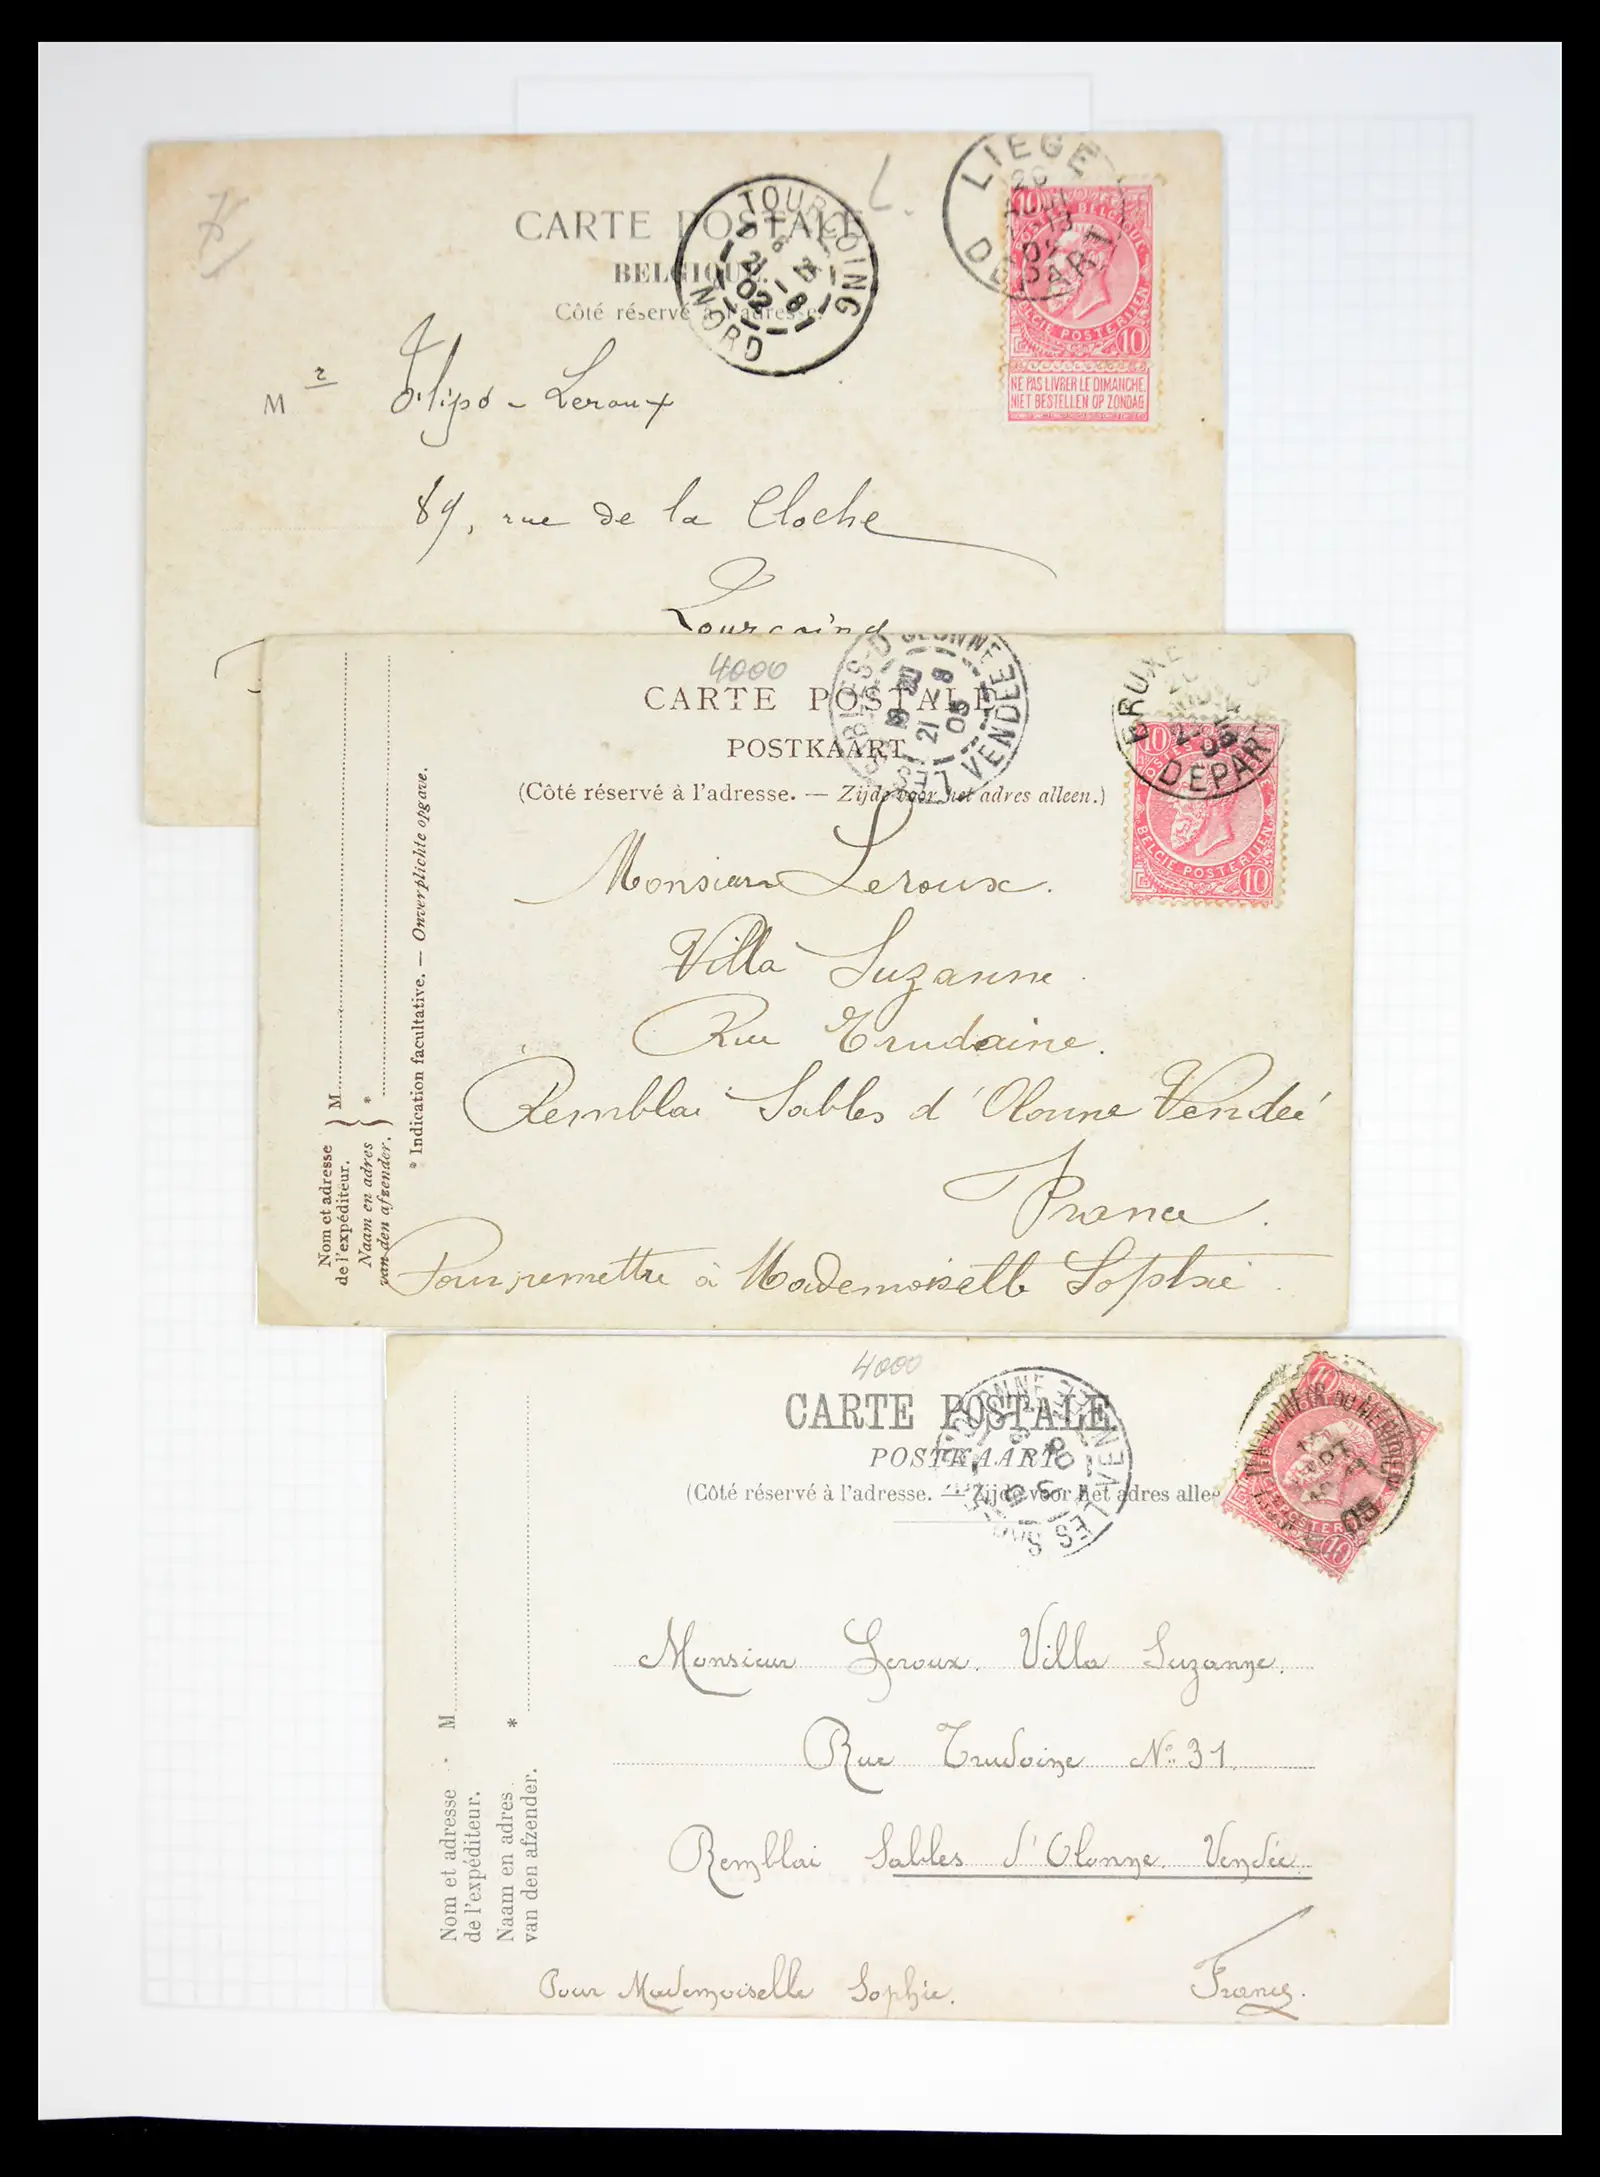 LIEGE
20
AOUT
13
02
DEPART
TOURCOING
21 - 8
02
NORD
CARTE POSTALE
BELGIQUE.
Côté réservé à l'adresse.
10
BELGIE POSTERIJEN
10
NE PAS LIVRER LE DIMANCHE.
NIET BESTELLEN OP ZONDAG
M r Filipo - Leroux
89, rue de la Cloche
Tourcoing
4000
CARTE POSTALE
POSTKAART
(Côté réservé à l'adresse. — Zijde voor het adres alleen.)
LES SABLES-D'OLONNE
21 - 8
05
VENDEE
BRUXE
05
DEPART
10
BELGIE POSTERIJEN
10
Monsieur Leroux.
Villa Suzanne.
Rue Trudaine.
Remblai Sables d'Olonne Vendée
France.
Pour remettre à Mademoiselle Sophie.
Nom et adresse
de l'expéditeur.
Naam en adres
van den afzender.
M
*
* Indication facultative. — Onverplichte opgave.
4000
CARTE POSTALE
POSTKAART
(Côté réservé à l'adresse. — Zijde voor het adres alle
LES SABLES D'OLONNE
VENDEE
10
10
05
Monsieur Leroux. Villa Suzanne.
Rue Trudaine No 31.
Remblai Sables d'Olonne. Vendée.
France.
Pour Mademoiselle Sophie.
Nom et adresse
de l'expéditeur.
Naam en adres
van den afzender.
M
*